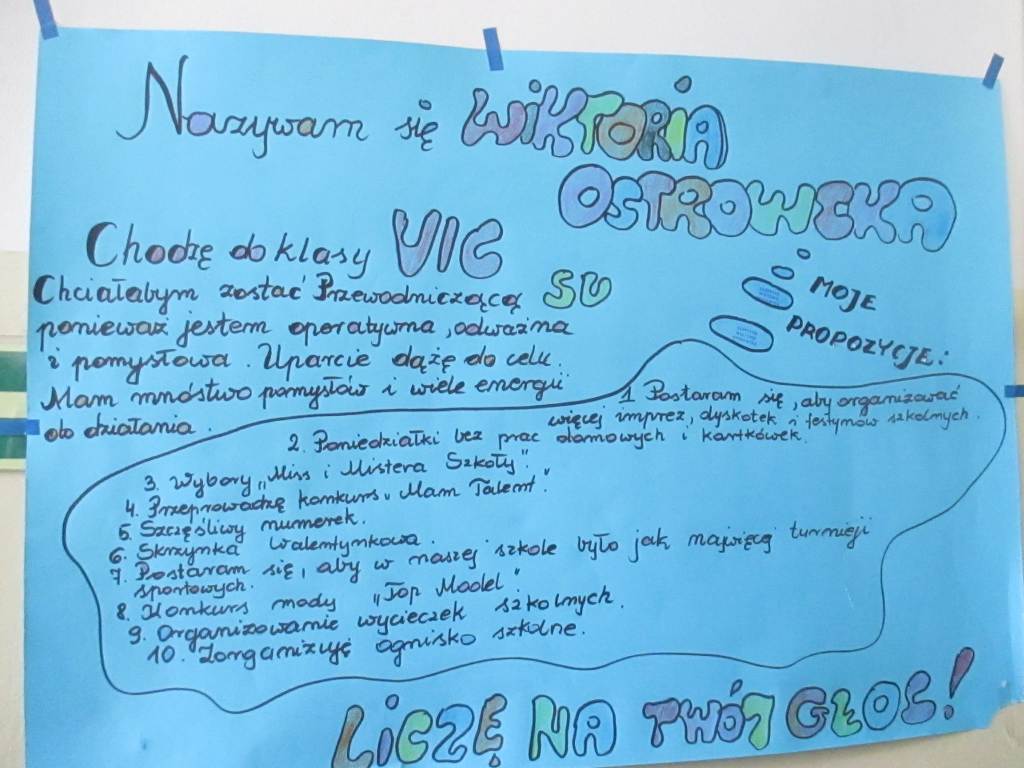 Nazywam się WiKTORiA
OSTROWSKA
Chodzę do klasy VIC
Chciałabym zostać Przewodniczącą SU
ponieważ jestem operatywna, odważna
i pomysłowa. Uparcie dążę do celu.
Mam mnóstwo pomysłów i wiele energii
do działania.
MOJE
PROPOZYCJE:
1 Postaram się, aby organizować
więcej imprez, dyskotek i festynów szkolnych.
2. Poniedziałki bez prac domowych i kartkówek.
3. Wybory „Miss i Mistera Szkoły".
4. Przeprowadzę konkurs „Mam Talent".
5. Szczęśliwy numerek.
6. Skrzynka Walentynkowa.
7. Postaram się, aby w naszej szkole było jak najwięcej turnieji
sportowych.
8. Konkurs mody „Top Model".
9. Organizowanie wycieczek szkolnych.
10. Zorganizuję ognisko szkolne.
LiCZĘ NA TWÓJ GŁOS!